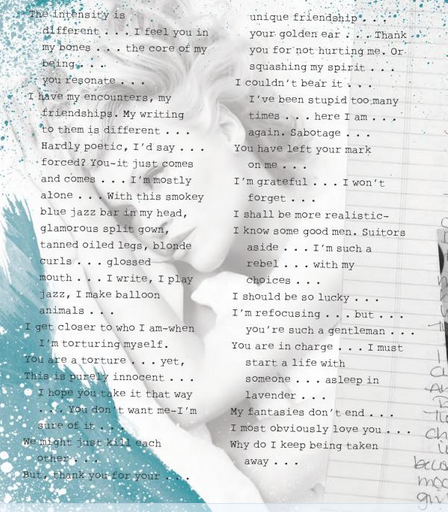 The intensity is
different . . . I feel you in
my bones . . . the core of my
being. . .
you resonate . . .
I have my encounters, my
friendships. My writing
to them is different . . .
Hardly poetic, I'd say . . .
forced? You-it just comes
and comes . . . I'm mostly
alone . . . With this smokey
blue jazz bar in my head,
glamorous split gown,
tanned oiled legs, blonde
curls . . . glossed
mouth . . . I write, I play
jazz, I make balloon
animals . . .
I get closer to who I am-when
I'm torturing myself.
You are a torture . . . yet,
This is purely innocent . . .
I hope you take it that way
. . . You don't want me-I'm
sure of it . . .
We might just kill each
other . . .
But, thank you for your . . .
unique friendship . . .
your golden ear . . . Thank
you for not hurting me. Or
squashing my spirit . . .
I couldn't bear it . . .
I've been stupid too many
times . . . here I am . . .
again. Sabotage . . .
You have left your mark
on me . . .
I'm grateful . . . I won't
forget . . .
I shall be more realistic-
I know some good men. Suitors
aside . . . I'm such a
rebel . . . with my
choices . . .
I should be so lucky . . .
I'm refocusing . . . but . . .
you're such a gentleman . . .
You are in charge . . . I must
start a life with
someone . . . asleep in
lavender . . .
My fantasies don't end . . .
I most obviously love you . . .
Why do I keep being taken
away . . .